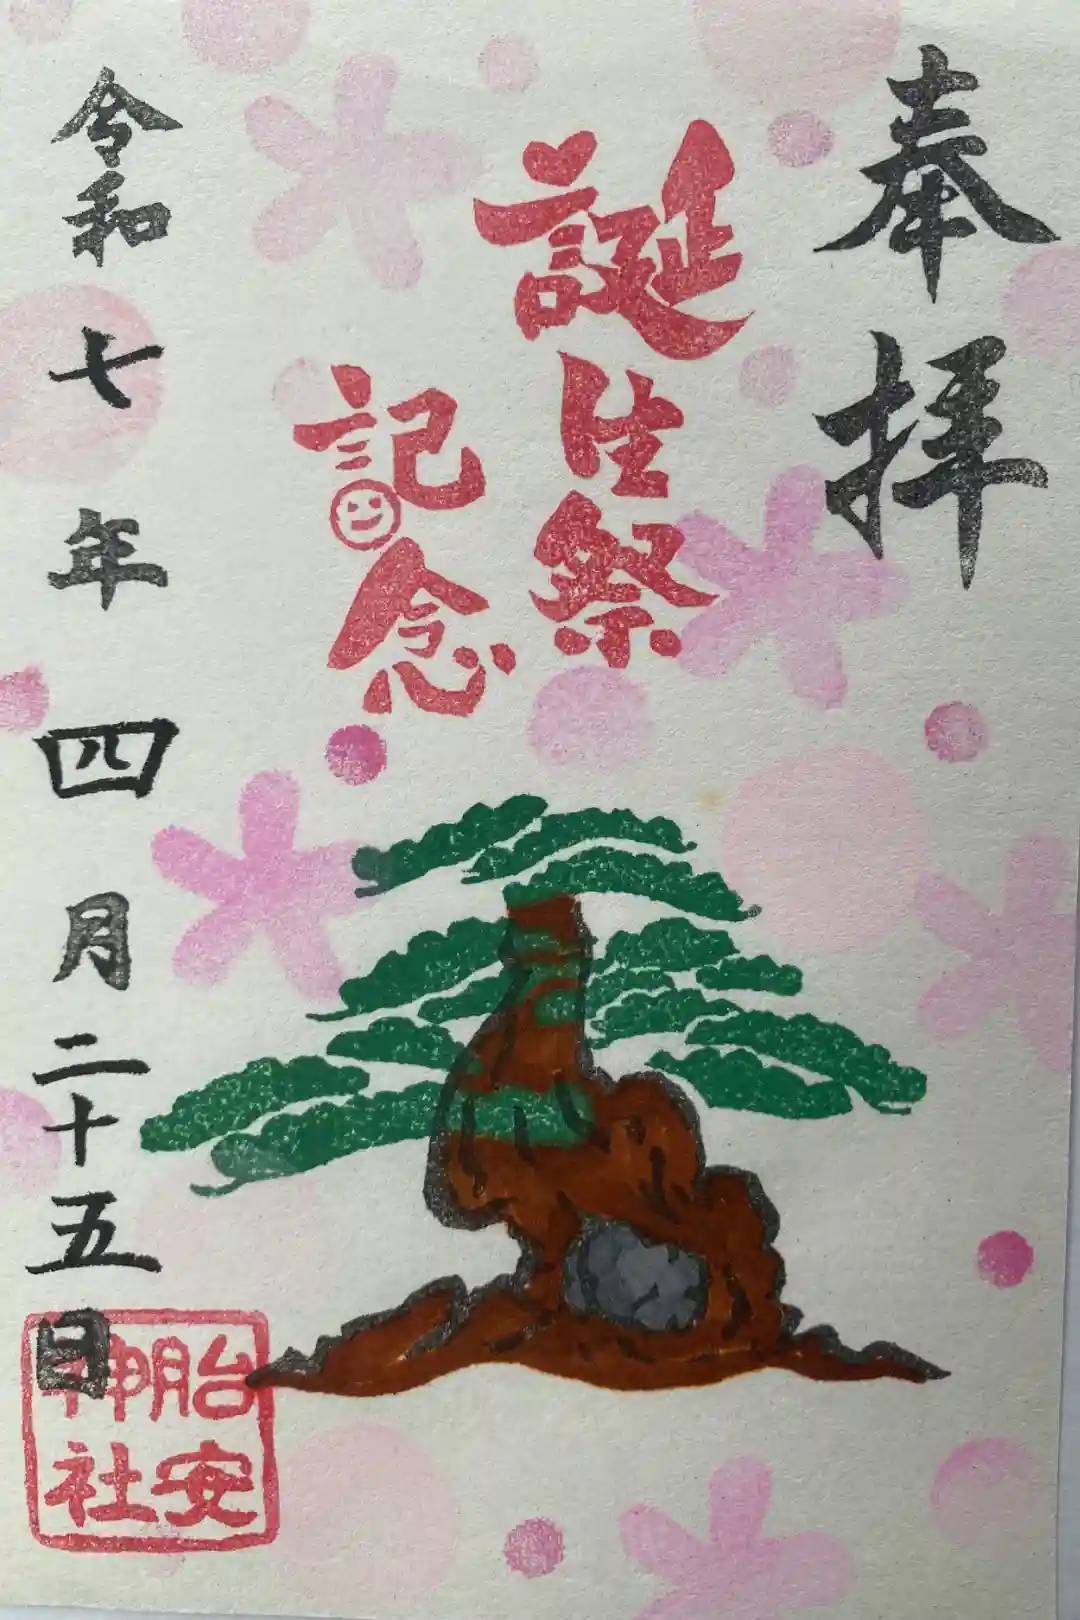 奉拝
誕生祭
記念
令和七年四月二十五日
胎安
神社